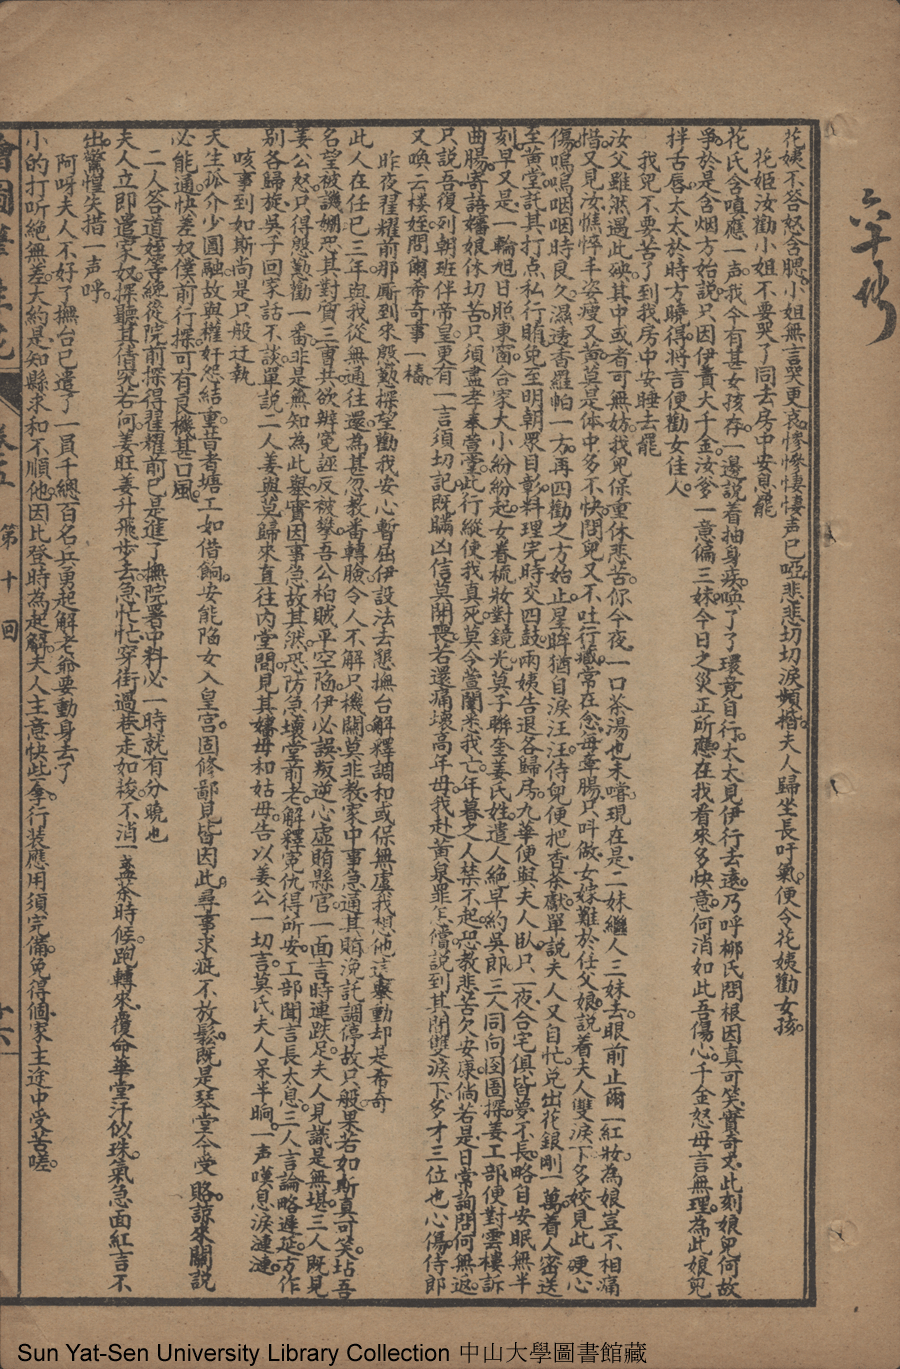 花姨不答怒含腮。小姐無言哭更哀。慘慘悽悽声已啞。悲悲切切淚頻揩。夫人歸坐長吁氣。便令花姨勸女孩。
花姬汝勸小姐不要哭了同去房中安息罷
花氏含嗔應一声。我今有甚女孩存。一邊説着抽身疾。喚了了環竟自行。太太見伊行去遠。乃呼柳氏問根因。真可笑。實奇文。此刻娘兒何故
爭。於是含烟方始説。只因伊責大千金。汝爹一意偏三妹。今日之災正所應。在我看來多快意。何消如此吾傷心。千金怒母言無理。為此娘兒
拌舌唇。太太於時方曉得。將言便勸女佳人。
我兒不要苦了到我房中安睡去罷
汝父雖然遇此殃。其中或者可無妨。我兒保重休悲苦。你今夜。一口茶湯也未嚐。現在是。二妹繼人三妹去。眼前止爾一紅妝。為娘豈不相痛
惜。又見汝憔悴丰姿瘦又黃。莫是体中多不快。問兒又不吐行藏。常在念。毋牽腸。只叫做。女嫁難於任父娘。説着夫人雙淚下。多姣見此硬心
傷。嗚嗚咽咽時良久。濕透香羅帕一方。再四勸之方始止。星眸猶自淚汪汪。侍兒便把香茶獻。單説夫人又自忙。兑出花銀剛一萬。着人密送
至黃堂。託其打点私行賄。兔至明朝眾目彰。料理完時交四鼓。兩姨告退各歸房。九華便與夫人臥。只一夜。合宅俱皆夢不長。略自安眠無半
刻。早又是。一輪旭日照東窗。合家大小紛紛起。女眷梳妝對鏡光。莫子聯奎姜氏姓。遣人絕早約吳郎。三人同向囹圄探。姜工部便對雲樓訴
曲腸。寄語嬸娘休切苦。只須盡孝奉萱堂。此行縱使我真死。莫令萱闈悉我亡。年暮之人禁不起。恐教悲苦欠安康。倘若是日常詢問何無返。
只説吾復列朝班伴帝皇。更有一言須切記。既瞞凶信莫開喪。若還痛壞高年母。我赴黃泉罪怎償。説到其間雙淚下。多才三位也心傷。侍郎
又喚云樓姪。問爾希奇事一樁。
昨夜翟耀前那厮到來慇勤探望勸我安心暫屈伊設法去懇撫台解釋調和或保無虞我想他這舉動却是希奇
此人在任已三年。與我從無通往還。為甚忽教番轉臉。令人不解只機關。莫非教。家中事急通其賄。浼託調停故只般。果若如斯真可笑。玷吾
名望被譏姍。恐其對質三曹共。欲辨冤誣反被攀。吾公怕賊平空陷。伊必誤叛逆心虛賄縣官。一面言時連跌足。夫人見識是無堪。三人既見
姜公怒。只得慇勤勸一番。非是無知為此舉。實因事急故其然。恐防急壞堂前老。解釋冤仇得所安。工部聞言長太息。三人言論略遲延。方作
别。各歸旋。吳子回家話不談。單説二人姜與莫。歸來直往內堂間。見其嬸母和姑母。告以姜公一切言。莫氏夫人呆半晌。一声嘆息淚漣漣。
咳事到如斯尚是只般迂執
天生孤介少圓融。故與權奸怨結重。昔者塘工如借餉。安能陷女入皇宮。固修鄙見皆因此。尋事求疵不放鬆。既是琴堂今受賂。諒來關説
必能通。快差奴僕前行探。可有良機甚口風。
二人答道姪等纔從院前探得翟耀前已是進了撫院署中料必一時就有分曉也
夫人立即遣家奴。探聽其情究若何。姜旺姜升飛步去。急忙忙。穿街過巷走如梭。不消一盞茶時候。跑轉來。覆命華堂汗似珠。氣急面紅言不
出。驚惶失措一声呼。
阿呀夫人不好了撫台已遣了一員千總百名兵勇起解老爺要動身去了
小的打听絕無差。大約是。知縣求和不順他。因此登時為起解。夫人主意快些拿。行装應用須完備。免得個。家主途中受苦嗟。
繪圖筆生花
卷五
第十回
十六
Sun Yat-Sen University Library Collection 中山大學圖書館藏